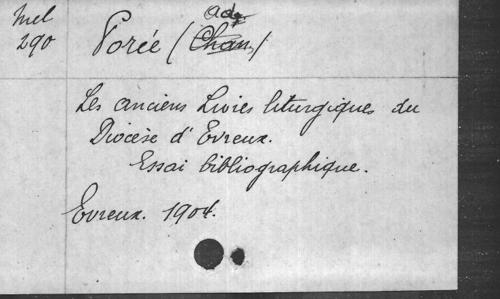 Mel
290
Porée (Chan.)
Adq.
Les anciens Livres liturgiques du
Diocèse d'Evreux.
Essai bibliographique.
Evreux. 1904.